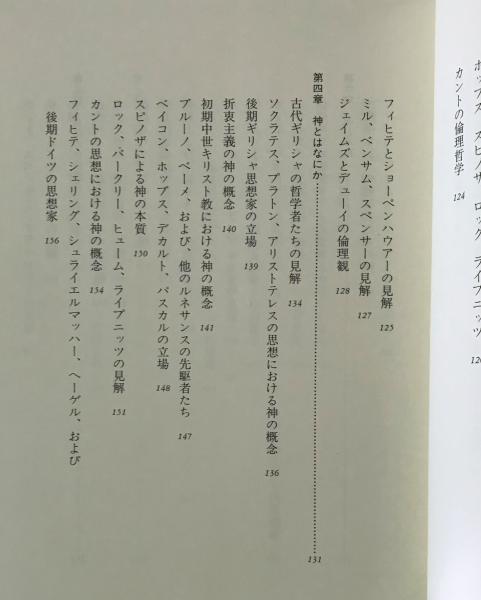 カントの倫理哲学 124
フィヒテとショーペンハウアーの見解 125
ミル、ベンサム、スペンサーの見解 127
ジェイムズとデューイの倫理観 128
第四章 神とはなにか……………………………………131
古代ギリシャの哲学者たちの見解 134
ソクラテス、プラトン、アリストテレスの思想における神の概念 136
後期ギリシャ思想家の立場 139
折衷主義の神の概念 140
初期中世キリスト教における神の概念 141
ブルーノ、ベーメ、および、他のルネサンスの先駆者たち 147
ベイコン、ホッブス、デカルト、パスカルの立場 148
スピノザによる神の本質 150
ロック、バークリー、ヒューム、ライプニッツの見解 151
カントの思想における神の概念 154
フィヒテ、シェリング、シュライエルマッハー、ヘーゲル、および
後期ドイツの思想家 156